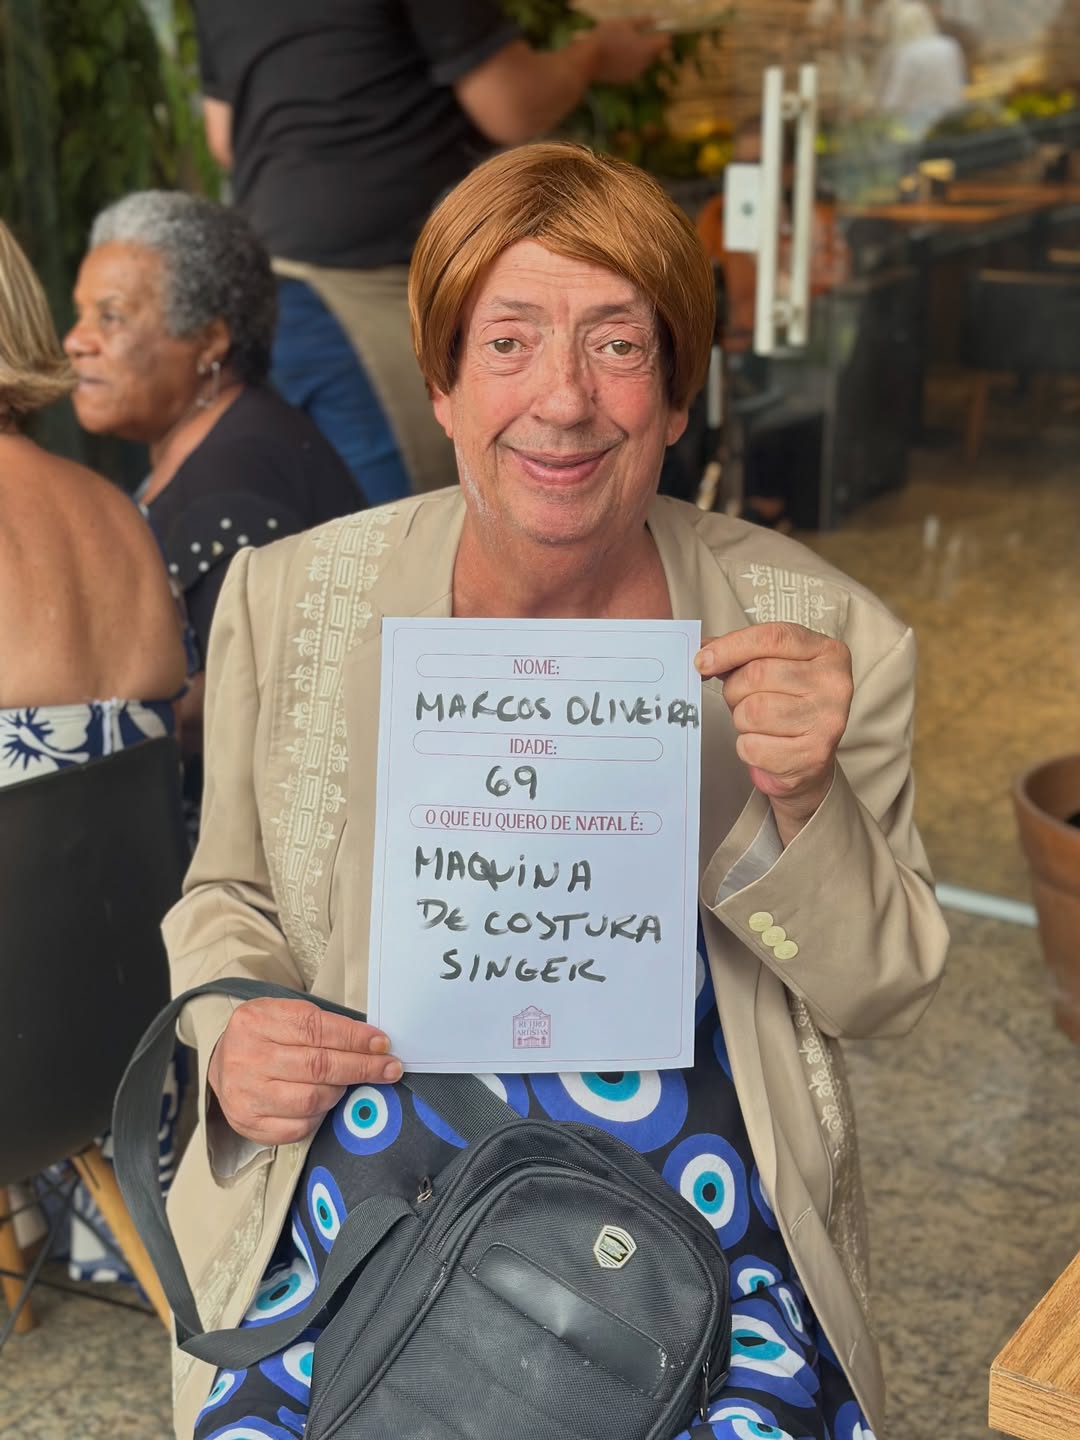 NOME:
MARCOS OLIVEIRA
IDADE:
69
O QUE EU QUERO DE NATAL É:
MAQUINA
DE COSTURA
SINGER
RETIRO
DOS
ARTISTAS